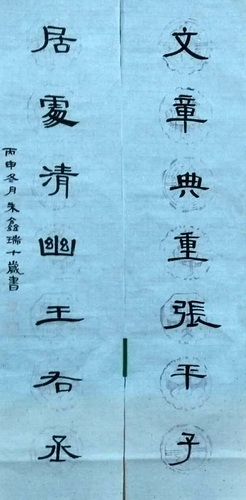 文章典重張平子
居處清幽王右丞
丙申冬月朱鑫瑞十歲書